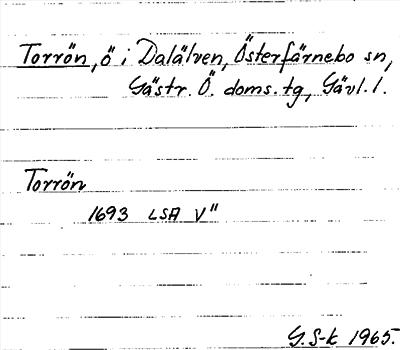 Torrön, ö i Dalälven, Österfärnebo sn,
Gästr. Ö. doms. tg, Gävl. l.
Torrön
1693 LSA V"
G. S-k 1965.